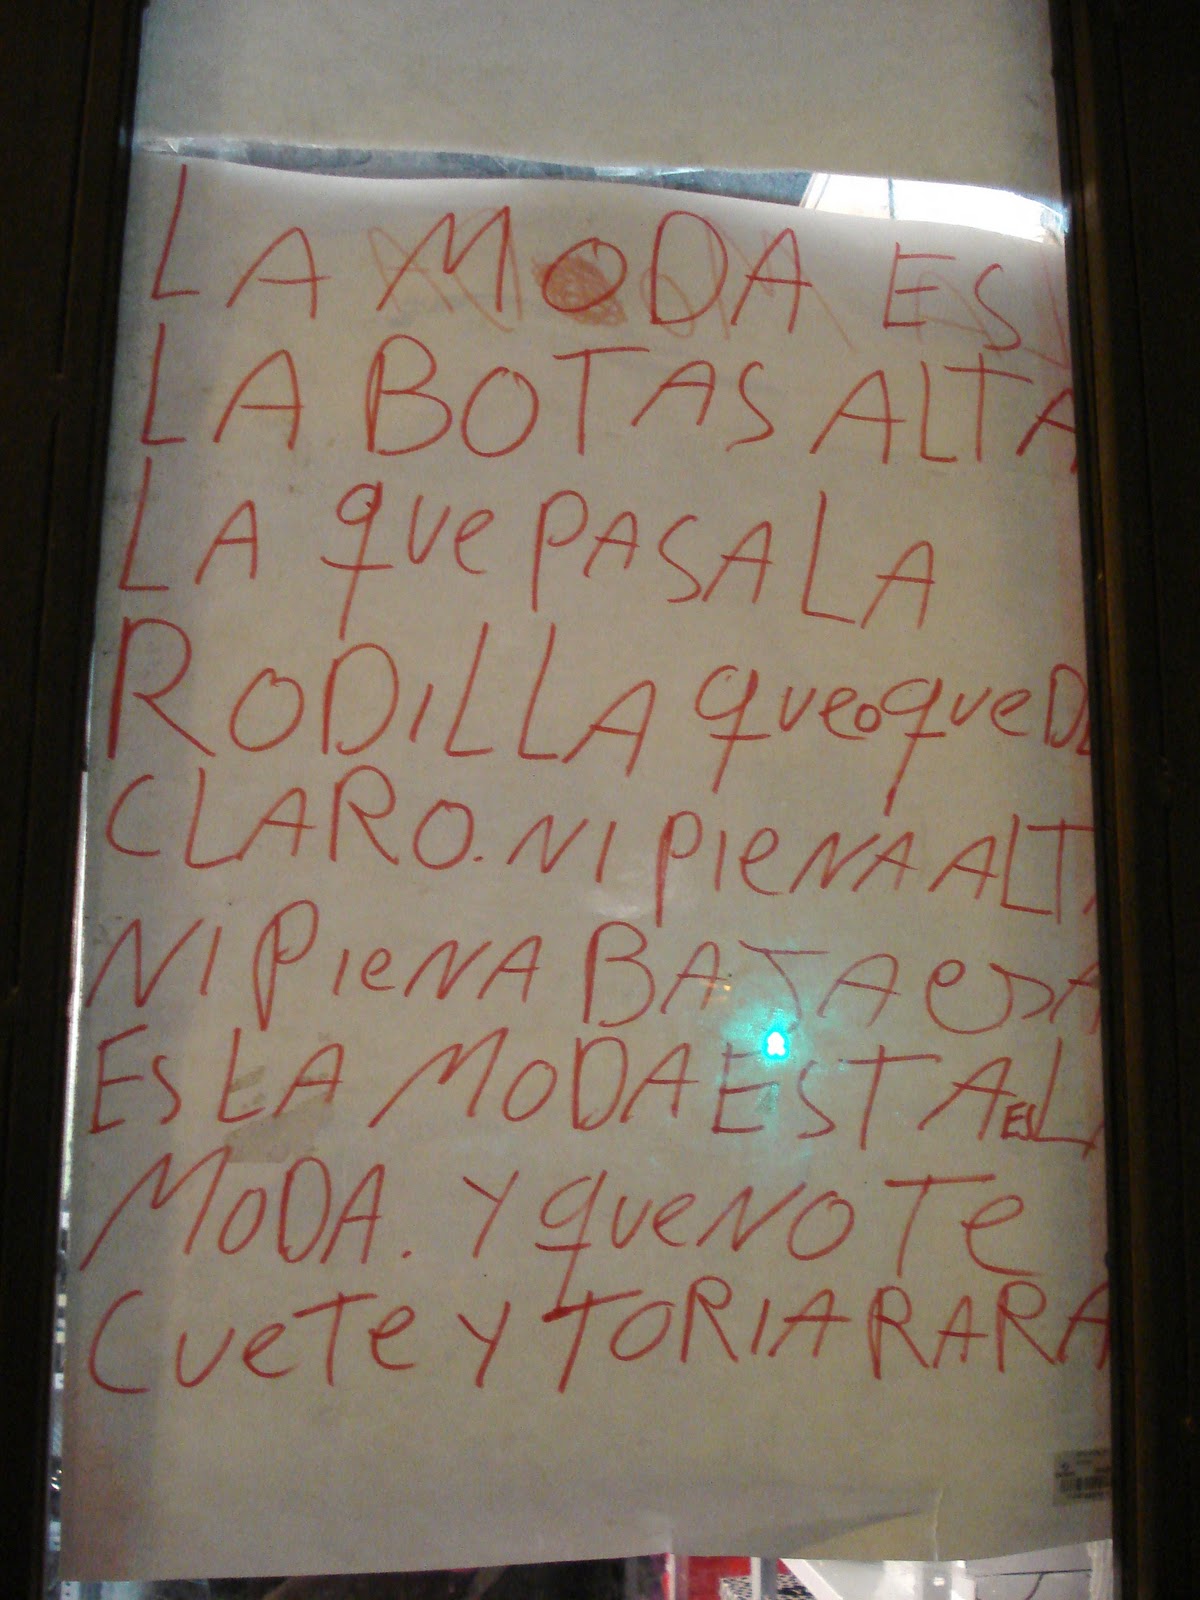 LA MODA ES
LA BOTAS ALTA
LA que PASA LA
RODILLA que o queDe
CLARO. NI PIeNA ALTA
NI PIeNA BAJA eSA
ES LA MODA ESTA es LA
MODA. Y que NO Te
CueTe Y TORIA RARA